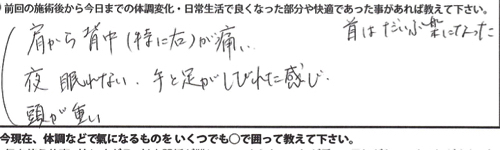 前回の施術後から今日までの体調変化・日常生活で良くなった部分や快適であった事があれば教えて下さい。
首はだいぶ楽になった
肩から背中(特に右)が痛い
夜眠れない、手と足がしびれた感じ.
頭が重い
今現在、体調などで氣になるものをいくつでも○で囲って教えて下さい。